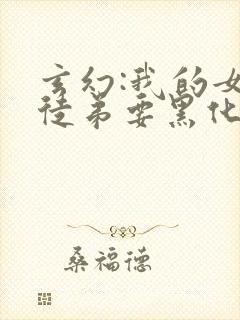 玄幻:我的女
徒弟要黑化
桑福德